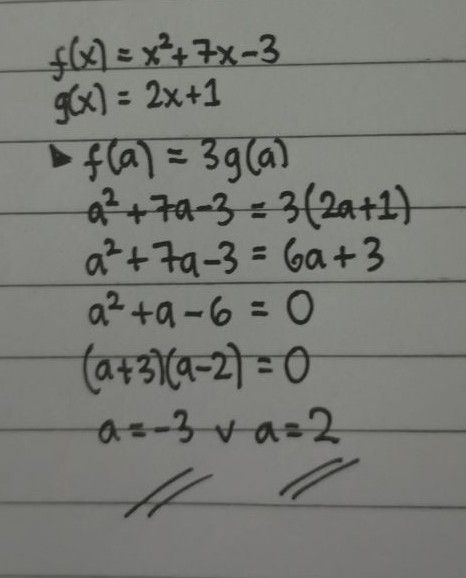 f(x) = x²+7x-3
g(x) = 2x+1
▶ f(a) = 3g(a)
a²+7a-3 = 3(2a+1)
a²+7a-3 = 6a+3
a²+a-6 = 0
(a+3)(a-2) = 0
a=-3 v a=2